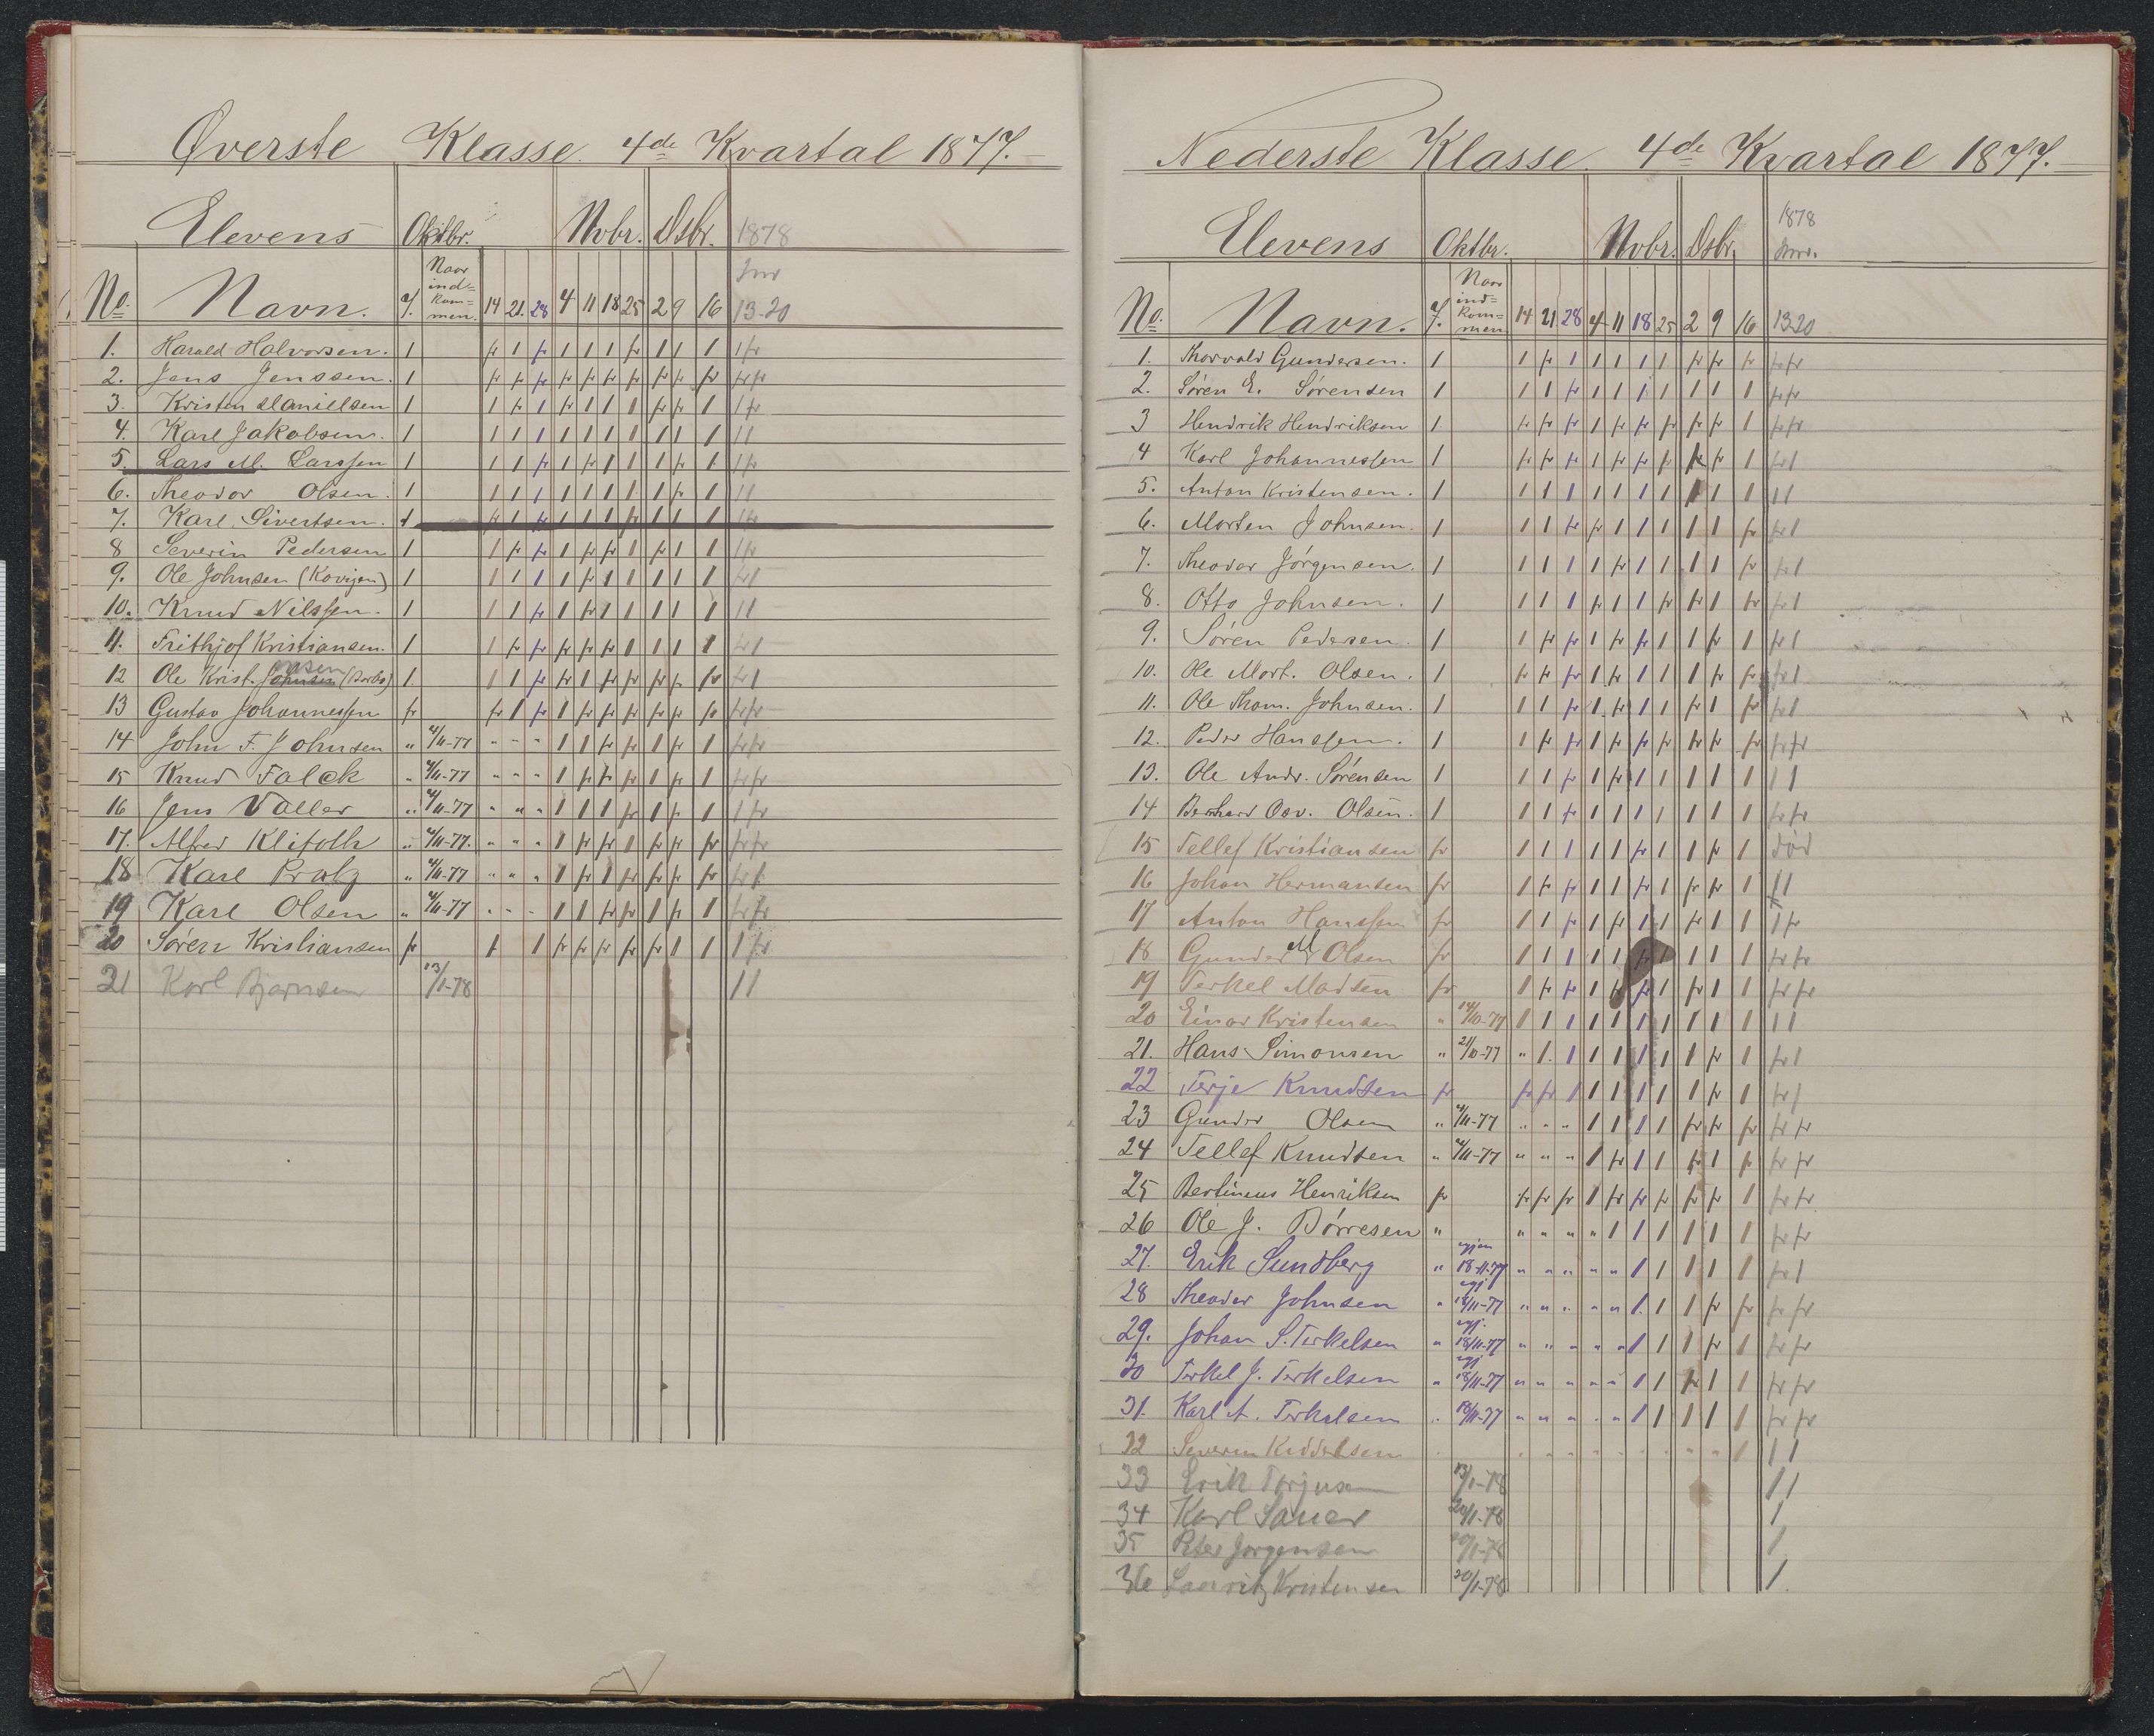 Øverste Klasse 4de Kvartal 1877.
Elevens Oktbr. Nvbr. Dsbr. 1878
No. Navn. 7. Naar indkommen. 14 21. 28 4 11 18 25 2 9 16 Jnr 13-20
1. Harald Halvorsen. 1 fr 1 fr 1 1 1 fr 1 1 1 1 fr
2. Jens Jenssen. 1 fr fr fr fr fr fr fr fr fr fr fr fr
3. Kristen Danielsen 1 1 fr 1 fr 1 1 1 fr fr 1 1 fr
4. Karl Jakobsen. 1 1 1 1 1 1 1 1 1 1 1 1 1
5. Lars M. Larssen 1 1 1 fr 1 fr 1 1 1 fr 1 1 fr
6. Theodor Olsen. 1 1 1 1 1 1 1 1 1 fr 1 1 1
7. Karl Sivertsen. 1 fr 1 fr 1 1 1 fr 1 1 1 1 fr
8 Severin Pedersen 1 1 fr fr 1 fr fr 1 fr 1 1 1 fr
9. Ole Johnsen (Kovigen) 1 1 1 1 1 fr 1 1 1 1 1 fr 1
10. Knud Nilssen. 1 1 1 fr 1 fr 1 1 1 1 1 1 1
11. Frithjof Kristiansen. 1 1 fr fr fr fr fr 1 1 1 1 fr 1
12 Ole Krist. Johnsen (Barbo) 1 1 1 fr fr 1 fr fr fr fr fr fr 1
13 Gustav Johannessen fr fr 1 fr 1 fr fr fr fr fr fr fr fr
14 John F. Johnsen " 4/11-77 " " " 1 1 fr fr 1 fr 1 fr fr
15 Knud Falck " 4/11-77 " " " 1 fr fr fr 1 fr 1 fr fr
16 Jens Valler " 4/11-77 " " " 1 1 1 fr 1 fr 1 1 fr
17. Alfred Klitoth " 4/11-77. " " " 1 fr fr 1 fr fr fr fr fr
18 Karl Pratz " 4/11-77 " " " 1 fr 1 fr fr fr fr fr 1
19 Karl Olsen " 4/11-77 " " " 1 1 fr fr 1 fr 1 fr fr
20 Søren Kristiansen fr 1 1 fr fr fr fr fr 1 1 1 fr
21 Karl Bjørnsen 13/1-78 1 1
Nederste Klasse. 4de Kvartal 1877.
Elevens Oktbr. Nvbr. Dsbr. 1878
No. Navn. 7. Naar indkommen 14 21 28 4 11 18 25 2 9 16 Jnr. 13 20
1. Thorvald Gundersen. 1 1 fr 1 1 1 1 1 fr fr fr fr fr
2. Søren E. Sørensen 1 1 1 fr 1 1 1 1 1 1 1 fr fr
3 Hendrik Hendriksen 1 fr fr fr 1 fr fr fr fr fr 1 fr fr
4 Karl Johannessen 1 fr fr fr 1 fr fr fr fr fr 1 fr 1
5. Anton Kristensen. 1 1 1 1 1 1 1 1 1 1 1 1 1
6. Morten Johnsen. 1 1 1 fr fr 1 1 1 1 1 fr fr 1
7. Theodor Jørgensen. 1 1 1 1 1 fr 1 1 1 1 fr fr 1
8. Otto Johnsen. 1 1 1 1 fr 1 1 fr fr 1 fr fr 1
9. Søren Pedersen. 1 1 fr fr 1 fr fr 1 1 fr 1 fr 1
10. Ole Mort. Olsen. 1 fr fr fr 1 fr 1 1 1 fr fr fr 1
11. Ole Thom. Johnsen. 1 1 1 fr 1 fr 1 1 fr 1 fr fr 1
12. Peder Hanssen. 1 1 fr fr 1 fr fr fr fr fr fr fr fr
13. Ole Andr. Sørensen 1 1 1 fr 1 fr 1 1 1 1 1 1 1
14 Bernhard Osv. Olsen. 1 1 1 fr 1 1 1 1 1 1 1 fr fr
15 Tellef Kristiansen fr 1 1 1 1 1 fr 1 1 fr 1 død
16 Johan Hermansen fr 1 fr fr 1 1 fr 1 fr fr 1 1 1
17 Anton Hanssen fr 1 1 fr 1 fr 1 1 fr 1 1 1 fr
18 Gunder M Olsen fr 1 1 1 1 1 fr 1 1 1 1 fr fr
19 Terkel Madsen fr 1 fr fr 1 fr fr 1 fr 1 1 fr fr
20 Einar Kristensen " 14/10-77 1 1 1 1 1 1 1 1 1 1 1 1
21. Hans Simonsen " 21/10-77 " 1. 1 1 1 1 1 1 fr 1 fr 1
22 Terje Knudsen fr fr fr 1 1 1 1 1 1 fr 1 fr 1
23 Gunder Olsen " 4/11-77 " " " 1 1 1 1 fr fr fr fr fr
24 Tellef Knudsen " 4/11-77 " " " 1 fr 1 1 fr 1 fr fr fr
25 Bertineus Henriksen fr fr fr fr 1 fr fr fr fr fr 1 fr fr
26 Ole J. Børresen " " " " " 1 1 1 1 1 1 fr fr
27. Erik Sundberg " 18-11-77 " " " " " 1 1 1 1 1 fr 1
28 Theodor Johnsen " 18/11-77 " " " " " 1. 1 1 fr fr fr fr
29. Johan S. Terkelsen " 18/11-77 " " " " " 1 1 1 fr 1 fr fr
30 Terkel J. Terkelsen " 18/11-77 " " " " " 1 1 fr 1 1 fr fr
31. Karl A. Terkelsen " 18/11-77 " " " " " 1 1 1 1 1 fr fr
32 Severin Kiddelsen " " " " " " " " " 1 1 1
33 Erik Terjusen 13/1-78 1 1
34 Karl Sauer 20/1-78 1
35 Peter Jørgensen 20/1-78 1
36 Lauritz Kristensen 20/1-78 1.